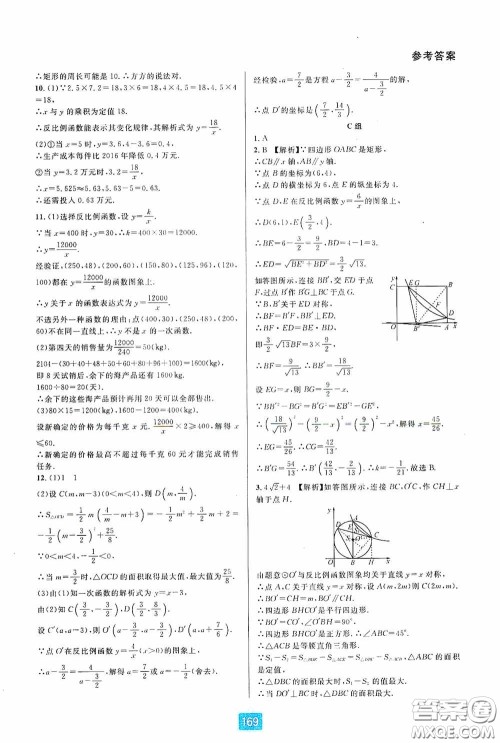 参考答案
∴矩形的周长可能是10.∴方方的说法对.
10.(1)∵2.5×7.2=18,3×6=18,4×4.5=18,4.5×4
=18,
∴x与y的乘积为定值18.
∴反比例函数能表示其变化规律,其解析式为y=18/x.
(2)①当x=5时,y=3.6,4-3.6=0.4,
∴生产成本每件比2016年降低0.4万元.
②当y=3.2时,3.2=18/x.
∴x=5.625≈5.63,5.63-5=0.63(万元),
∴还需投入0.63万元.
11.(1)选择反比例函数,设y=k/x.
∵当x=400时,y=30,∴k=400×30=12000.
∴y=12000/x.
经验证,(250,48),(200,60),(150,80),(125,96),(120,
100)都在y=12000/x的函数图象上.
∴y关于x的函数表达式为y=12000/x.
不选另外一种函数的理由:点(400,30),(250,48),(200,
60)不在同一直线上,y不是x的一次函数.
(2)第四天的销售量为12000/240=50(kg).
2104-(30+40+48+50+60+80+96+100)=1600(kg).
即8天试销后,余下的海产品还有1600kg.
1600÷80=20(天).
∴余下的这些海产品预计再用20天可以全部售出.
(3)80×15=1200(kg),1600-1200=400(kg),
设新确定的价格为每千克x元.12000/x×2≥400,解得x
≤60.
∴新确定的价格最高不超过每千克60元才能完成销售
任务.
12.(1)1 1
(2)设C(m,m-3)(0<m<4),则D(m,4/m).
∵0<m<4,-1/2<0,
∴当m=3/2时,△OCD的面积取得最大值,最大值为25/8.
(3)由(1)知一次函数的解析式为y=x-3.
由(2)知C(3/2,-3/2),D(3/2,8/3).
设C′(a,a-3),则O′(a-3/2,a-3/2),D′(a,a+7/6).
∵点O′在反比例函数y=4/x(x>0)的图象上,
∴a-3/2=4/(a-3/2).解得a=7/2或a=-1/2(舍去).
经检验,a=7/2是方程a-3/2=4/(a-3/2)的解,
∴点D′的坐标是(7/2,14/3).
C组
1.A
2.B 【解析】∵四边形OABC是矩形,
∴CB∥x轴,AB∥y轴.
∵点B的坐标为(6,4),
∴点D的横坐标为6,点E的纵坐标为4.
∵点D,E在反比例函数y=6/x的图象上,
∴D(6,1),E(3/2,4).
∴BE=6-3/2=9/2,BD=4-1=3.
∴ED=√(BE²+BD²)=3/2√13.
如答图所示,连接BB′,交ED于点
F,过点B′作B′G⊥BC于点G.
∵B,B′关于ED对称,
∴BF=B′F,BB′⊥ED.
∴BF·ED=BE·BD.
即3/2√13BF=3×9/2.
∴BF=9/√13.∴BB′=18/√13.
设EG=x,则BG=9/2-x.
∵BB′²-BG²=B′G²=EB′²-GE²,
∴(18/√13)²-(9/2-x)²=(9/2)²-x²,解得x=45/26.
∴EG=45/26.∴CG=42/13.
∴B′G=54/13.∴B′(42/13,-2/13).∴k=-1/21.故选B.
3.4√2+4 【解析】如答图所示,连接BC,O′C,作CH⊥x
轴于点H.
由题意⊙O′与反比例函数图象均关于直线y=x对称,
∴点A,C关于直线y=x对称,设A(m,2m),则C(2m,m),
∴BO′=CH=m,BO′∥CH.
∴四边形BHCO′是平行四边形.
∵BH=CH,∠BHC=90°,
∴四边形BHCO′是正方形.
∴△ABC是等腰直角三角形.
是定值.
∴△DBC的面积最大时,S₁-S₂的值最大.
∴当DO′⊥BC时,△DBC的面积最大.
169
答案圈
MXQE.COM